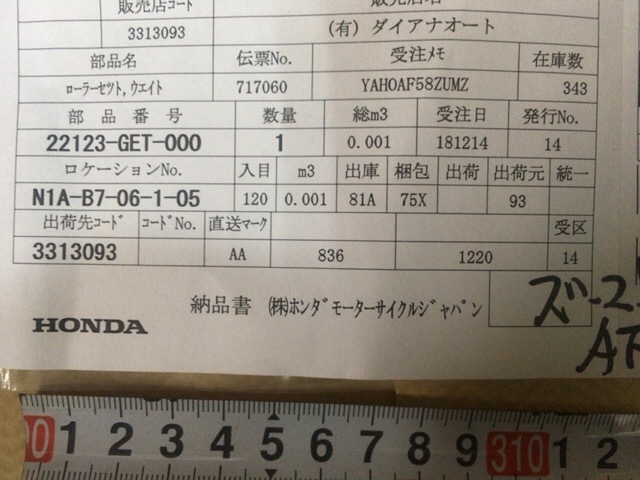 販売店コード 販売店名
3313093 (有) ダイアナオート
部品名 伝票No. 受注メモ 在庫数
ローラーセット,ウエイト 717060 YAHOAF58ZUMZ 343
部品番号 数量 総m3 受注日 発行No.
22123-GET-000 1 0.001 181214 14
ロケーションNo. 入目 m3 出庫 梱包 出荷 出荷元 統一
N1A-B7-06-1-05 120 0.001 81A 75X 93
出荷先コード コードNo. 直送マーク 受区
3313093 AA 836 1220 14
納品書 (株)ホンダモーターサイクルジャパン
HONDA
ズーマー
1 2 3 4 5 6 7 8 9 310 1 2